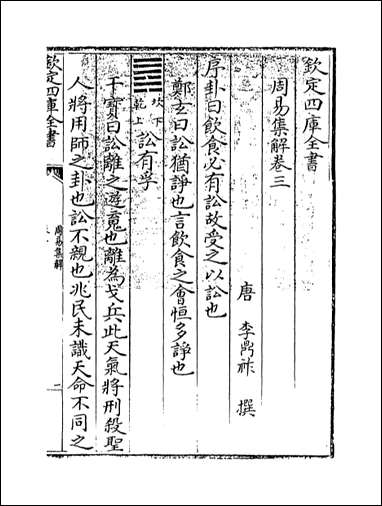 欽定四庫全書
周易集解卷三
唐 李鼎祚 撰
序卦曰飲食必有訟故受之以訟也
鄭玄曰訟猶諍也言飲食之會恒多諍也
坎下
乾上
訟有孚
干寶曰訟離之遊䰟也離為戈兵此天氣將刑殺聖
人將用師之卦也訟不親也兆民未識天命不同之
欽定四庫全書
周易集解